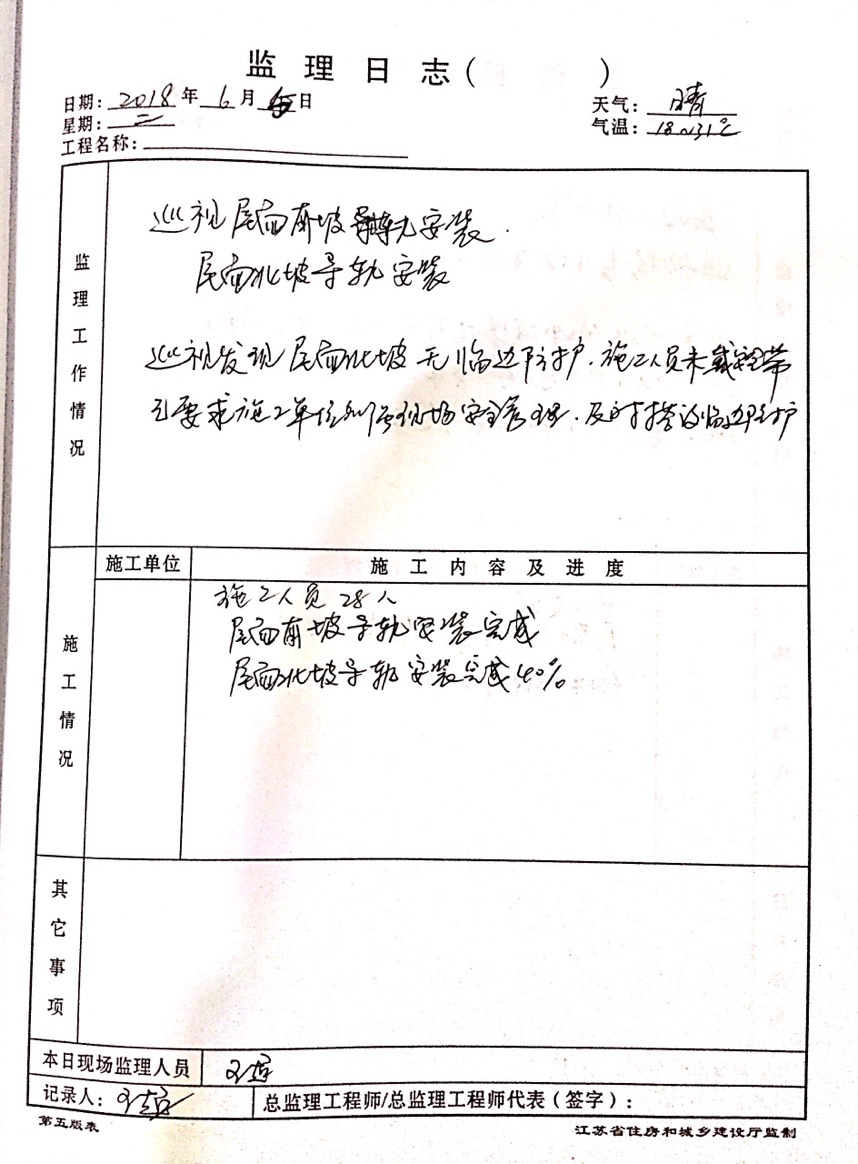 监理日志（　　　）
日期：2018年6月5日
天气：晴
星期：二
气温：18~31℃
工程名称：
监理工作情况
巡视屋面南坡导轨安装.
屋面北坡导轨安装
巡视发现屋面北坡无临边防护.施工人员未戴安全带
已要求施工单位加强现场安全管理.及时搭设临边防护
施工单位
施工内容及进度
施工情况
施工人员28人
屋面南坡导轨安装完成
屋面北坡导轨安装完成40%
其它事项
本日现场监理人员
记录人：
总监理工程师/总监理工程师代表（签字）：
第五版表
江苏省住房和城乡建设厅监制